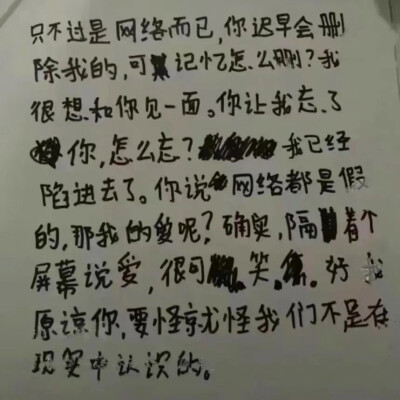 只不过是网络而已,你迟早会删
除我的,可记忆怎么删?我
很想和你见一面。你让我忘了
你,怎么忘?我已经
陷进去了。你说网络都是假
的,那我的爱呢?确实,隔着个
屏幕说爱,很可笑。好我
原谅你,要怪就怪我们不是在
现实中认识的。